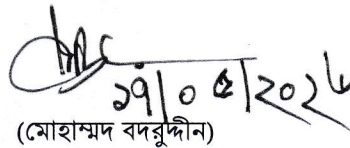 ১৭|০৫|২০২৬
(মোহাম্মদ বদরুদ্দীন)